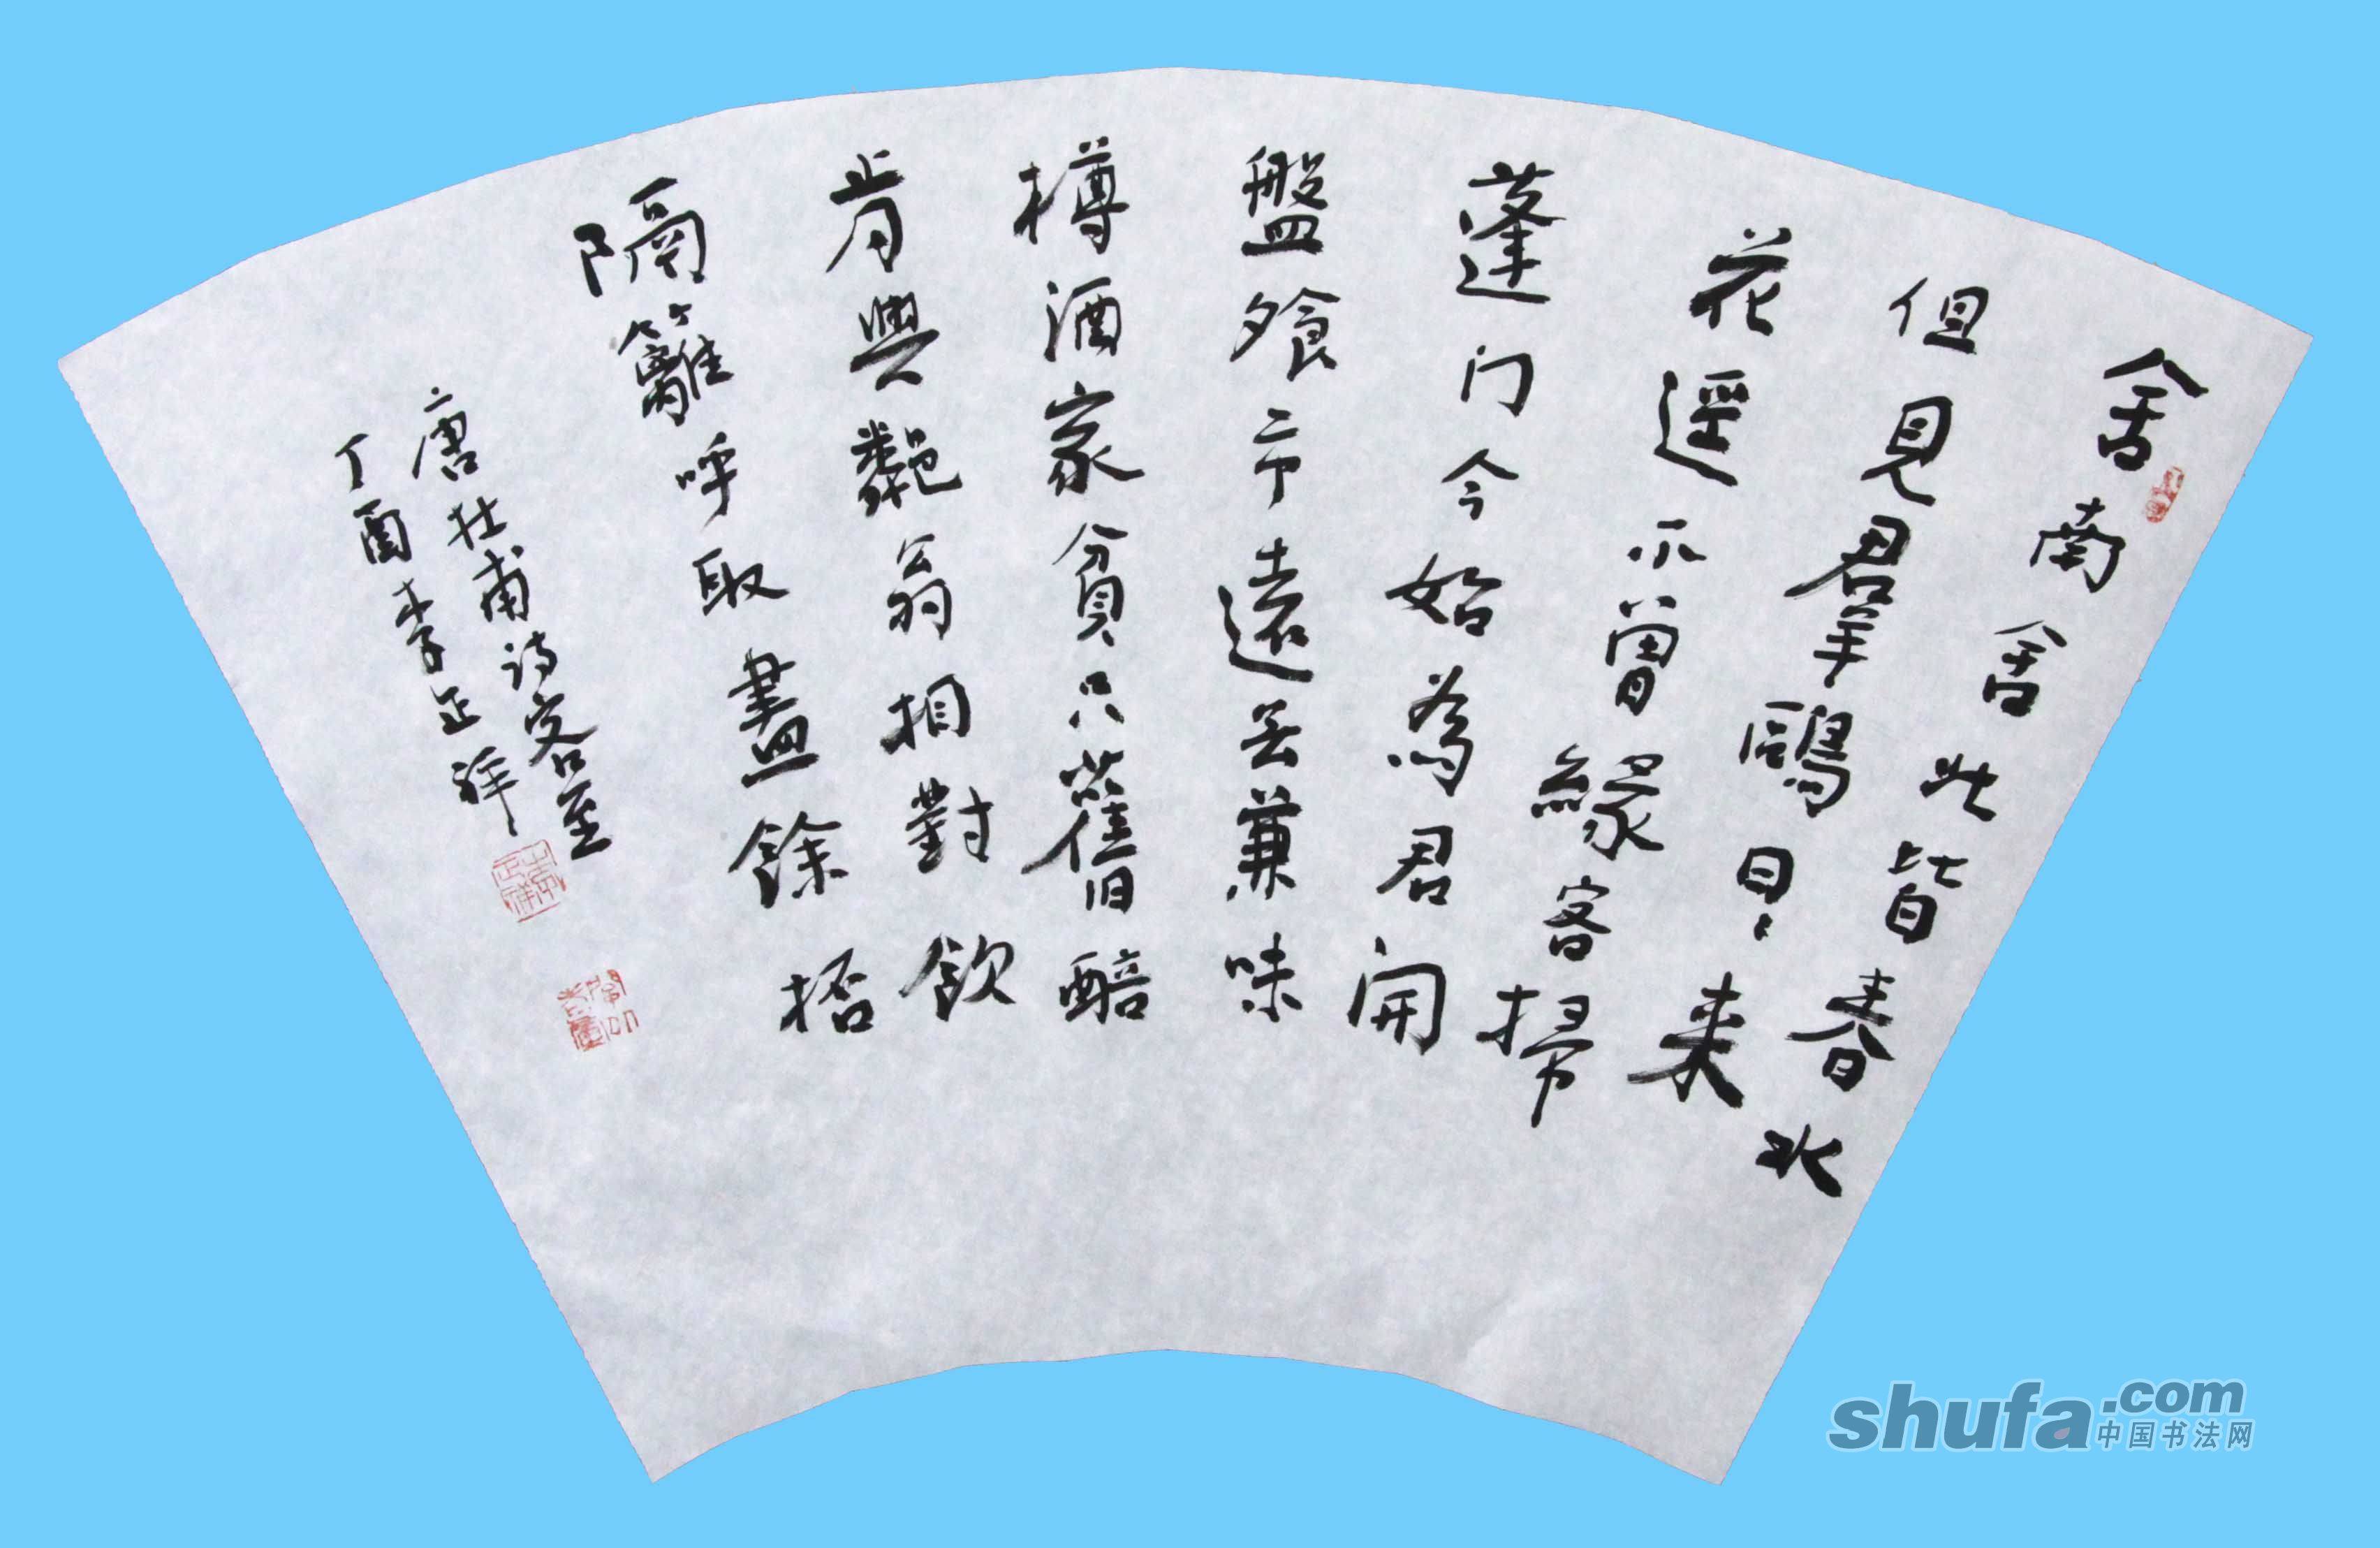 舍南舍北皆春水
但見羣鷗日〻来
花逕不曾緣客掃
蓬门今始為君開
盤飱市遠无兼味
樽酒家貧只舊醅
肯與鄰翁相對飲
隔籬呼取盡餘桮
唐杜甫诗客至
丁酉李正祥
shufa.com
中国书法网